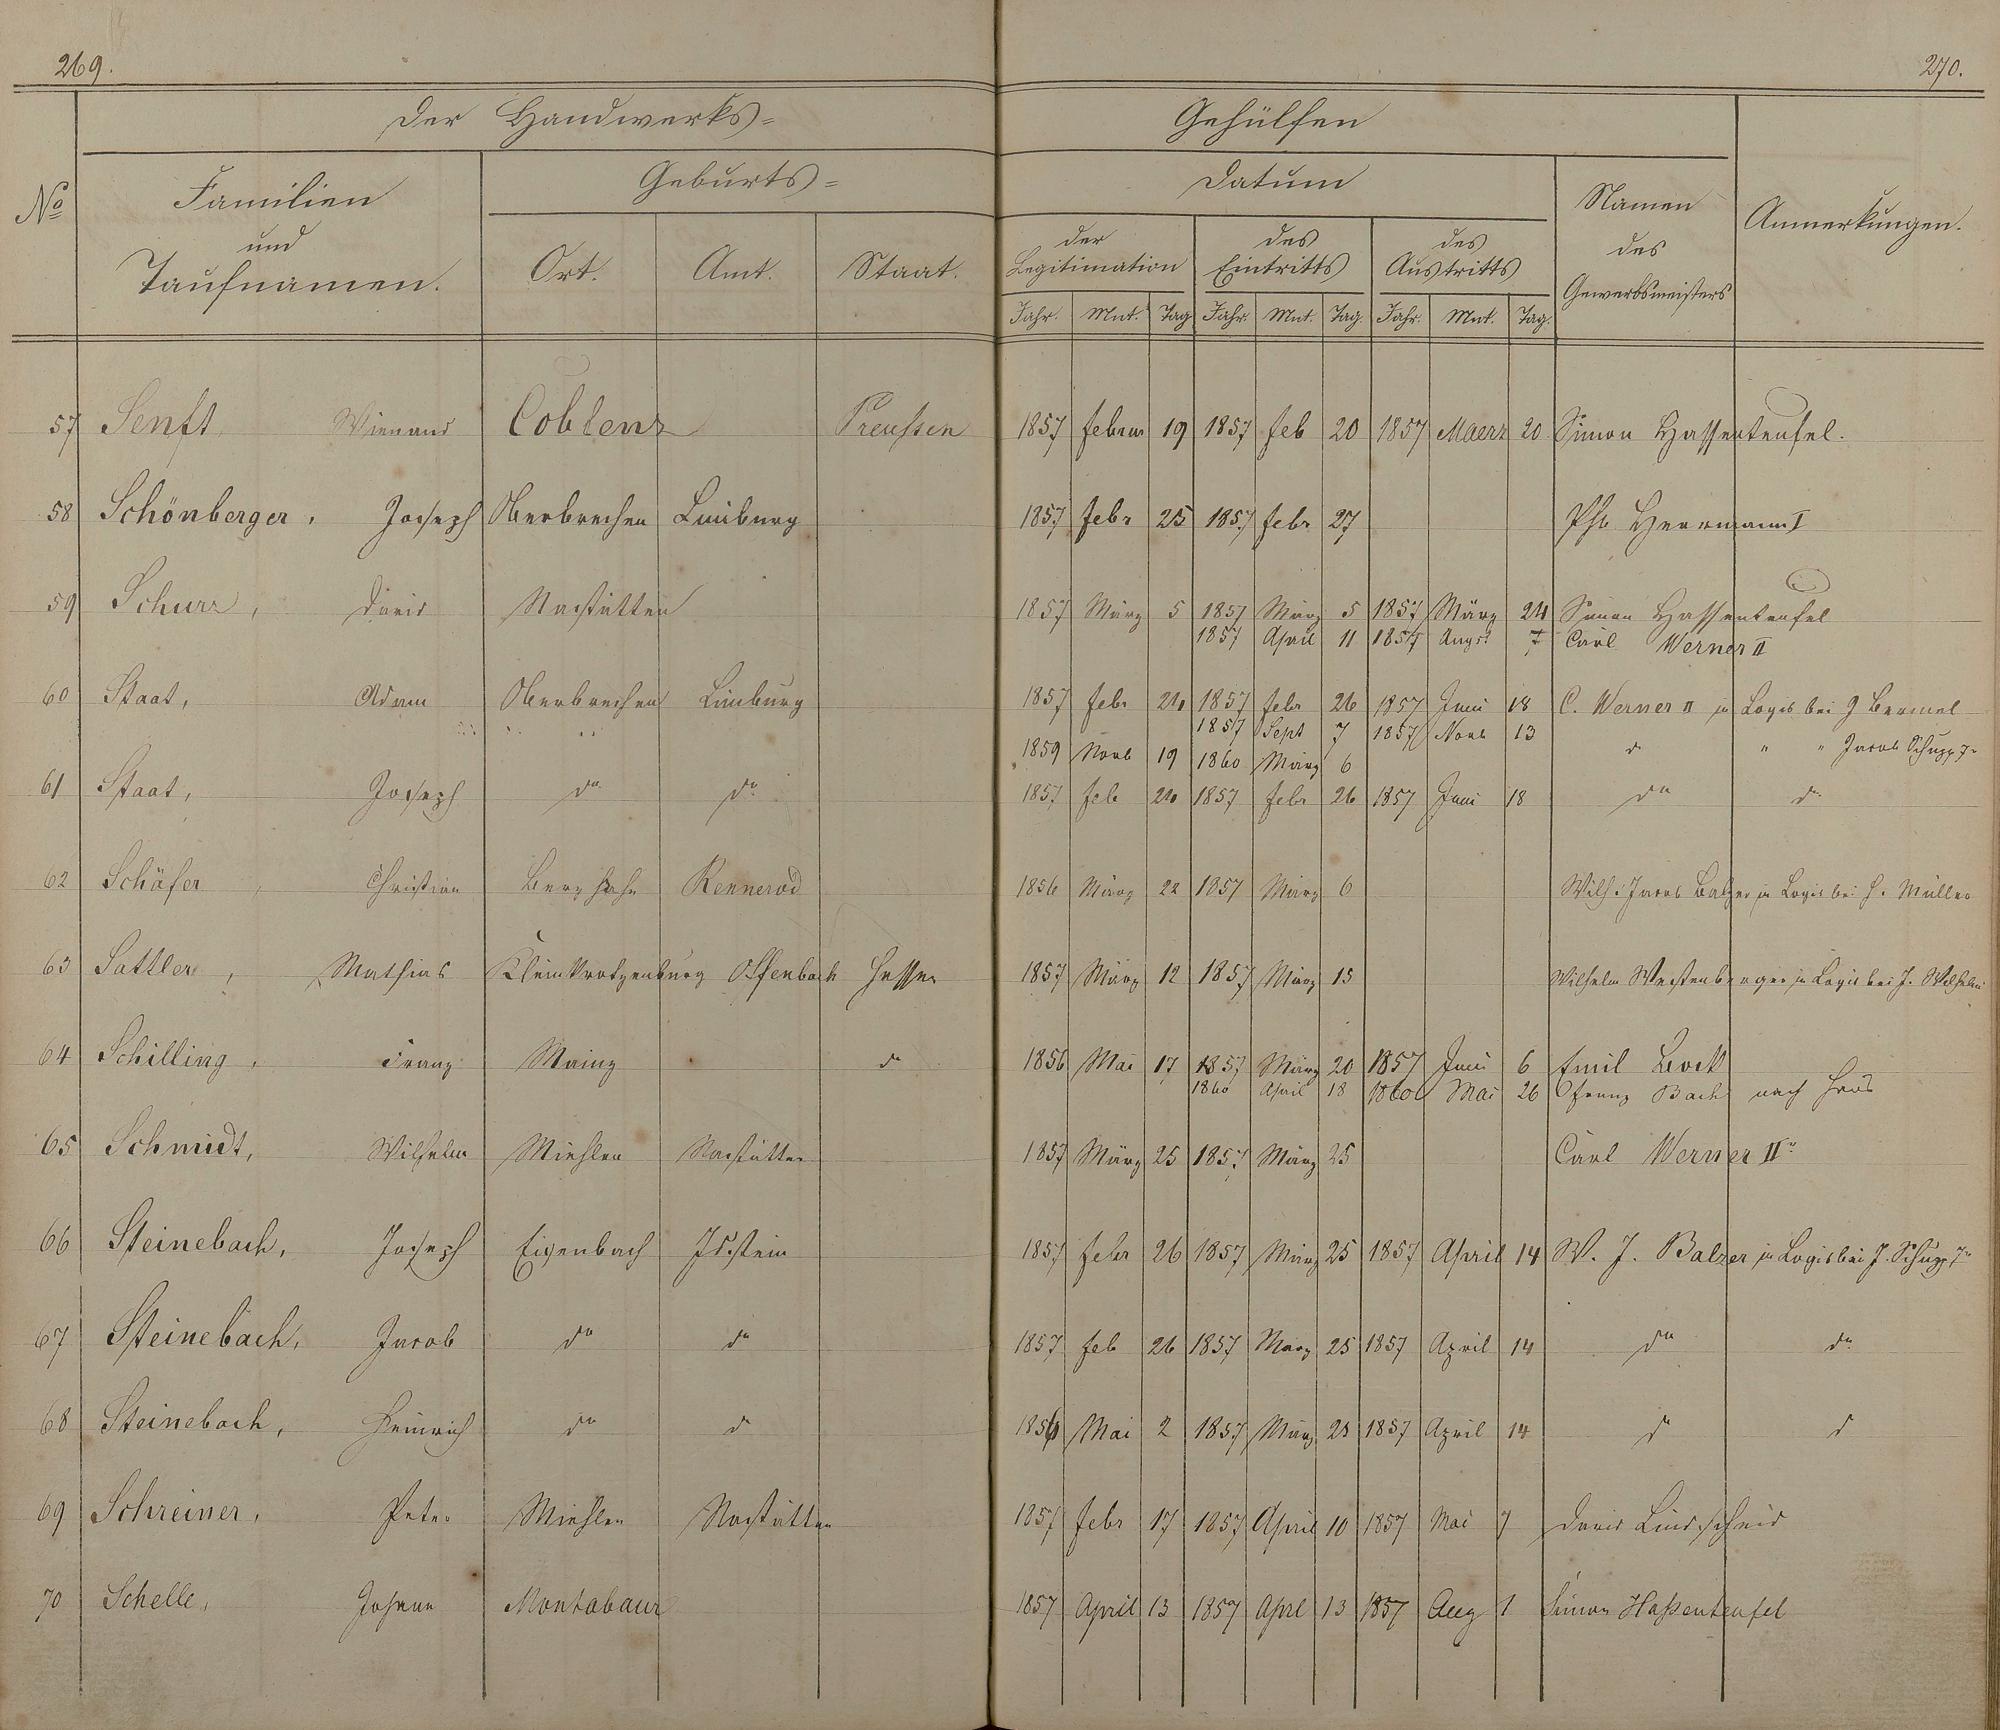 269.
270.
Der Handwerks= Gehülfen
No Familien und Taufnamen. Geburts= Datum Namen des Gewerbsmeisters Anmerkungen.
Ort. Amt. Staat. der Legitimation des Eintritts des Austritts
Jahr. Mnt. Tag Jahr. Mnt. Tag. Jahr. Mnt. Tag.
57 Senft Wienand Coblenz Preußen 1857 februar 19 1857 feb 20 1857 Maerz 20 Simon Hassenteufel.
58 Schönberger, Joseph Oberbrechen Limburg 1857 febr 25 1857 febr 27 Ph. Herrmann I
59 Schurz, David Nastätten 1857 März 5 1857 März 5 1857 März 24 Simon Hassenteufel
1857 April 11 1857 Augst 7 Carl Werner II
60 Staat, Adam Oberbrechen Limburg 1857 febr 26 1857 febr 26 1857 Juni 18 C. Werner II in Logis bei J Bermel
1857 Sept 7 1857 Novb 13
1859 Novb 19 1860 März 6 do " " Jacob Schupp Jr
61 Staat, Joseph do do 1857 feb 26 1857 febr 26 1857 Juni 18 do do
62 Schäfer, Christian Berzhahn Rennerod 1856 März 22 1857 März 6 Wilh. Jacob Balzer in Logis bei H. Müller
63 Sattler, Mathias Kleinkrotzenburg Offenbach Hessen 1857 März 12 1857 März 15 Wilhelm Westenberger in Logis bei J. Wilhelmi
64 Schilling, Franz Mainz do 1856 Mai 17 1857 März 20 1857 Juni 6 Emil Bock
1860 April 18 1860 Mai 26 Franz Bach nach
65 Schmidt, Wilhelm Miehlen Nastätten 1857 März 25 1857 März 25 Carl Werner IIr
66 Steinebach, Joseph Eisenbach Idstein 1857 febr 26 1857 März 25 1857 April 14 W. J. Balzer in Logis bei J. Schupp Jr
67 Steinebach, Jacob do do 1857 feb 26 1857 März 25 1857 April 14 do do
68 Steinebach, Heinrich do do 1856 Mai 2 1857 März 25 1857 April 14 do do
69 Schreiner, Peter Miehlen Nastätten 1857 febr 17 1857 April 10 1857 Mai 7 David Lindscheid
70 Schelle, Johann Montabaur 1857 April 13 1857 Aprl 13 1857 Aug 1 Simon Haßenteufel